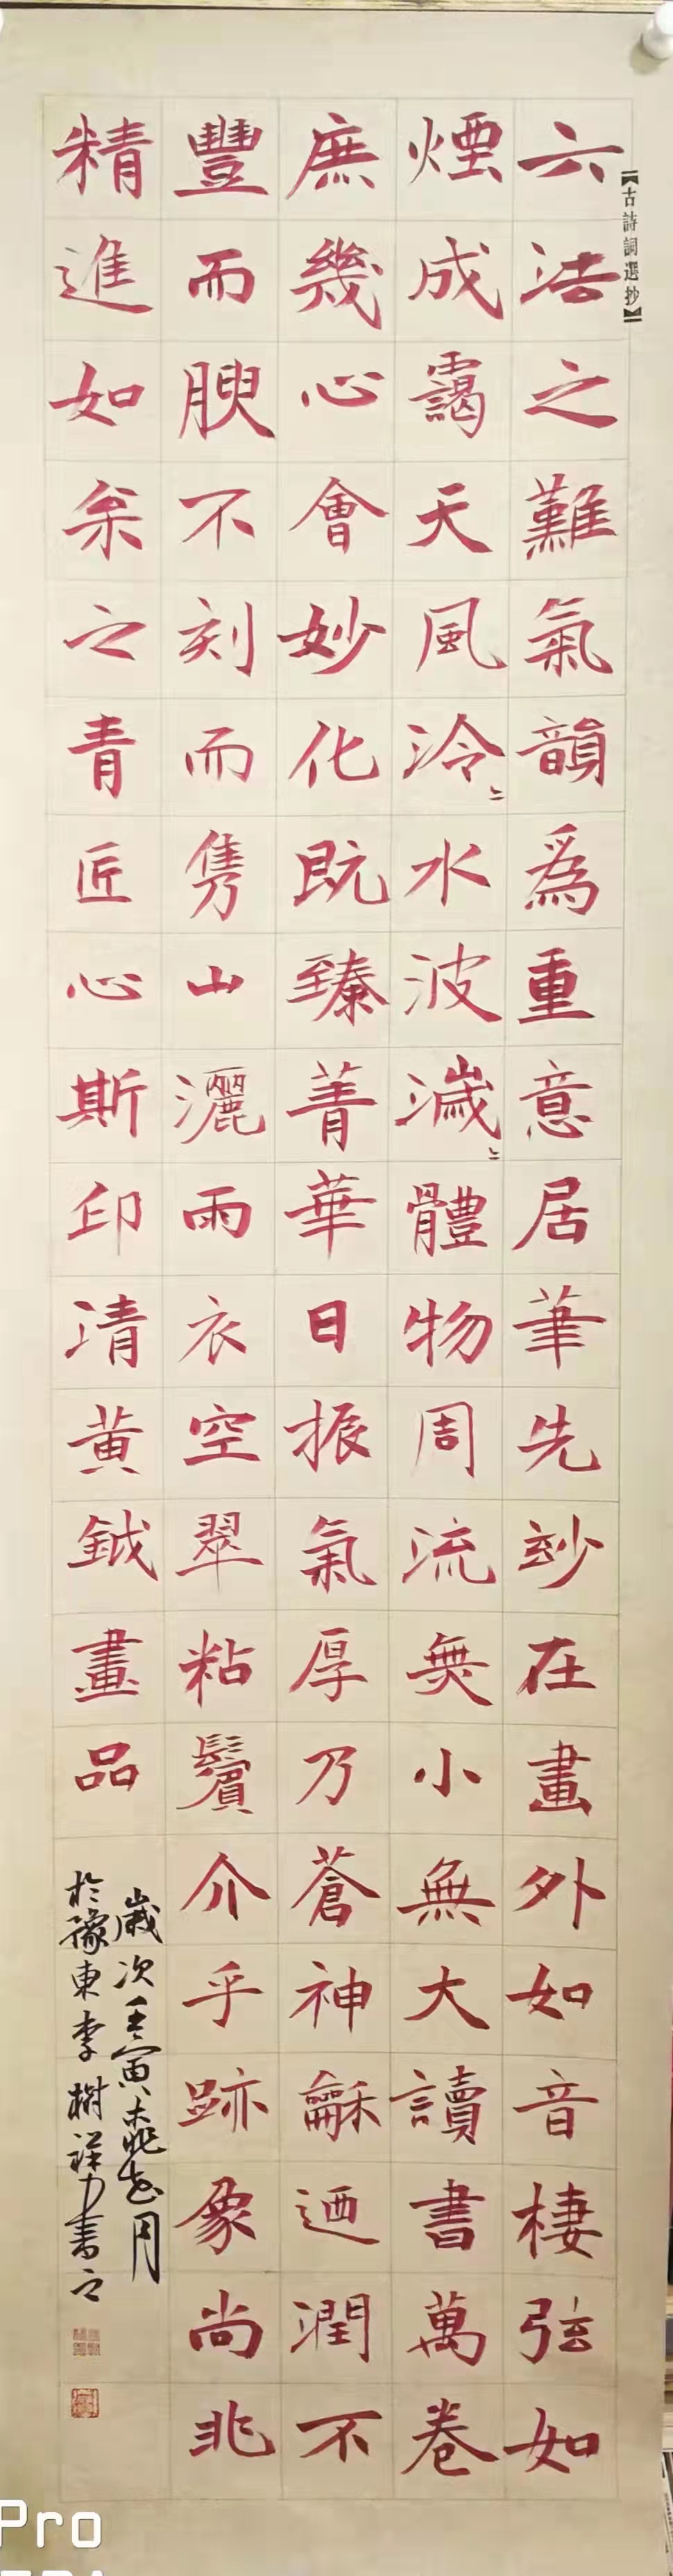 【古詩詞選抄】
六法之難氣韻爲重意居筆先玅在畫外如音棲弦如
煙成靄天風泠〻水波濊〻體物周流無小無大讀書萬卷
庶幾心會妙化既臻菁華日振氣厚乃蒼神龢迺潤不
豐而腴不刻而雋山灑雨衣空翠粘鬢介乎跡象尚非
精進如枀之青匠心斯印清黄鉞畫品
歲次壬寅桃花月
於豫東李樹祥書之
Pro